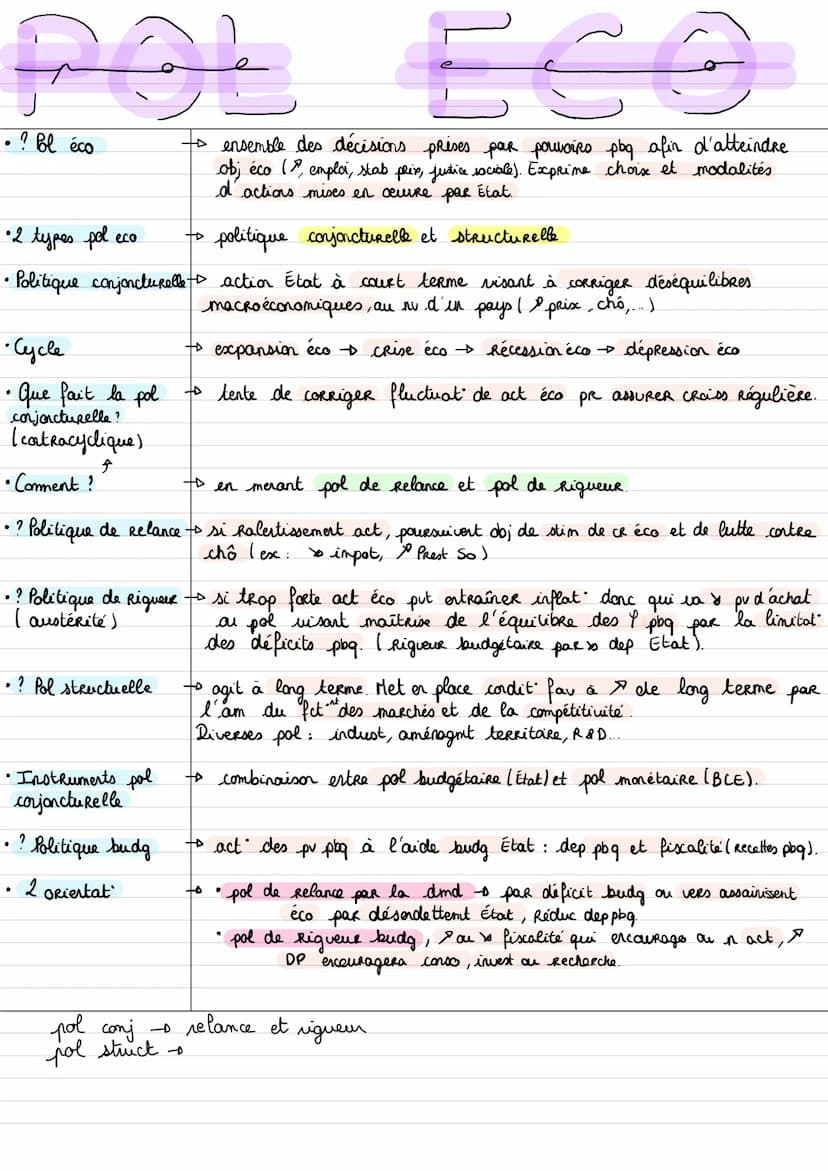 POL ECO
• ? Pol éco → ensemble des décisions prises par pouvoirs pbq afin d'atteindre
obj éco (↗, emploi, stab prix, justice sociale). Exprime choix et modalités
d'actions mises en œuvre par État.
• 2 types pol eco → politique conjoncturelle et structurelle
• Politique conjoncturelle → action État à court terme visant à corriger déséquilibres
macroéconomiques, au nv d'un pays ( ↗ prix, chô,...)
• Cycle → expansion éco → crise éco → récession éco → dépression éco
• Que fait la pol → tente de corriger fluctuat° de act éco pr assurer croiss régulière.
conjoncturelle ?
(contracyclique)
↑
• Comment ? → en menant pol de relance et pol de rigueur
• ? Politique de relance → si ralentissement act, poursuivent obj de stim de cr éco et de lutte contre
chô (ex : ↘ impot, ↗ Prest So)
• ? Politique de rigueur → si trop forte act éco put entraîner inflat° donc qui va ↘ pv d'achat
(austérité) au pol visant maîtrise de l'équilibre des φ pbq par la limitat°
des déficits pbq. (rigueur budgétaire par ↘ dep État).
• ? Pol structuelle → agit à long terme. Met en place condit° fav à ↗ de long terme par
l'am du fct°nt des marchés et de la compétitivité.
Diverses pol : indust, aménagmt territoire, R&D...
• Instruments pol → combinaison entre pol budgétaire (État) et pol monétaire (BCE).
conjoncturelle
• ? Politique budg → act° des pv pbq à l'aide budg État : dep pbq et fiscalité (recettes pbq).
• 2 orientat° → • pol de relance par la dmd → par déficit budg ou vers assainissent
éco par désendettemt État, réduc dep pbq.
• pol de rigueur budg, ↗ ou ↘ fiscalité qui encourage ou n act, ↗
DP encouragera conso, invest ou recherche.
pol conj → relance et rigueur
pol struct →